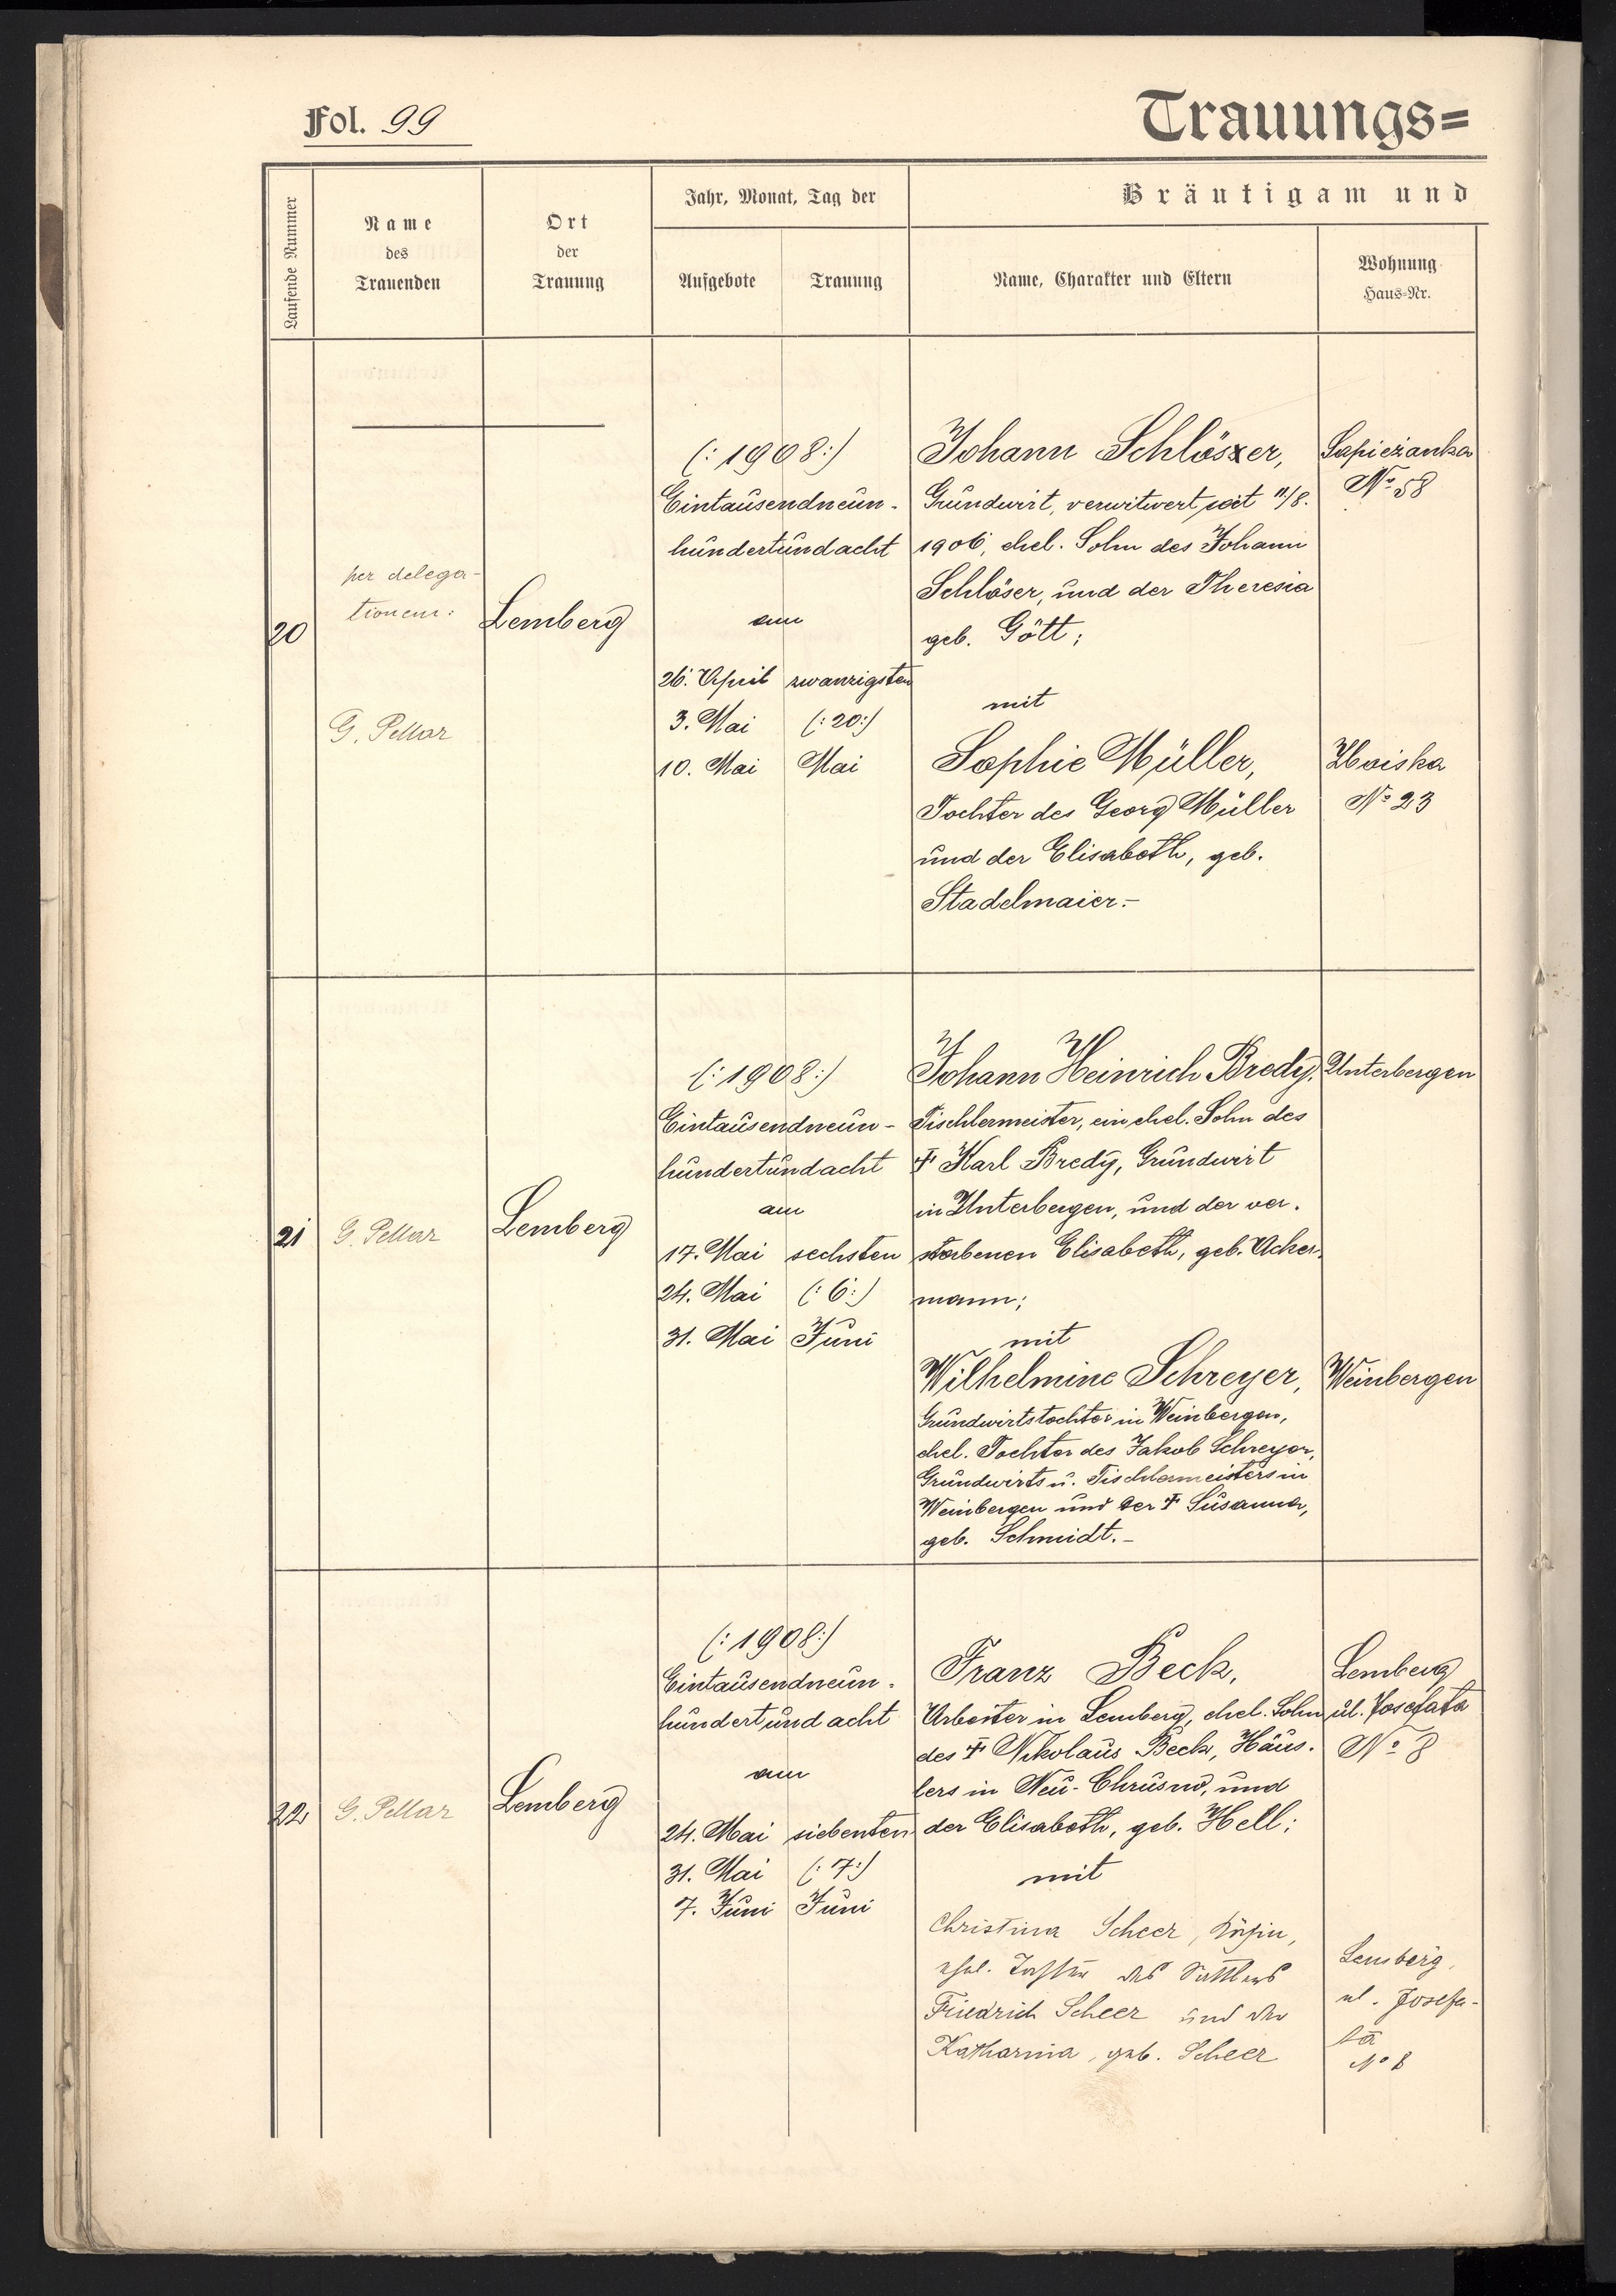 Fol. 99
Trauungs=
Laufende Nummer
Name
des
Trauenden
Ort
der
Trauung
Jahr, Monat, Tag der
Aufgebote
Trauung
Bräutigam und
Name, Charakter und Eltern
Wohnung
Haus-Nr.
20
per delega-
tionem:
G. Pellar
Lemberg
(: 1908 :)
Eintausendneun-
hundertundacht
am
26. April
3. Mai
10. Mai
zwanzigsten
(: 20 :)
Mai
Johann Schlöser,
Grundwirt, verwitwert seit 11/8.
1906, ehel. Sohn des Johann
Schlöser, und der Theresia
geb. Gött;
mit
Sophie Müller,
Tochter des Georg Müller
und der Elisabeth, geb.
Stadelmaier.-
Sapieżanka
No 58
Zboiska
No 23
21
G. Pellar
Lemberg
(: 1908 :)
Eintausendneun-
hundertundacht
am
17. Mai
24. Mai
31. Mai
sechsten
(: 6 :)
Juni
Johann Heinrich Bredy,
Tischlermeister, ein ehel. Sohn des
† Karl Bredy, Grundwirt
in Unterbergen, und der ver-
storbenen Elisabeth, geb. Acker-
mann;
mit
Wilhelmine Schreyer,
Grundwirtstochter in Weinbergen,
ehel. Tochter des Jakob Schreyer,
Grundwirts u. Tischlermeisters in
Weinbergen und der † Susanna,
geb. Schmidt.-
Unterbergen
Weinbergen
22
G. Pellar
Lemberg
(: 1908 :)
Eintausendneun-
hundert und acht
am
24. Mai
31. Mai
7. Juni
siebenten
(: 7 :)
Juni
Franz Beck,
Arbeiter in Lemberg, ehel. Sohn
des † Nikolaus Beck, Häus-
lers in Neu-Chrusno, und
der Elisabeth, geb. Hell;
mit
Christina Scheer, Köchin,
ehel. Tochter des Sattlers
Friedrich Scheer und der
Katharina, geb. Scheer
Lemberg
ul. Josefata
No 8
Lemberg,
ul. Josefa-
ta
No 8